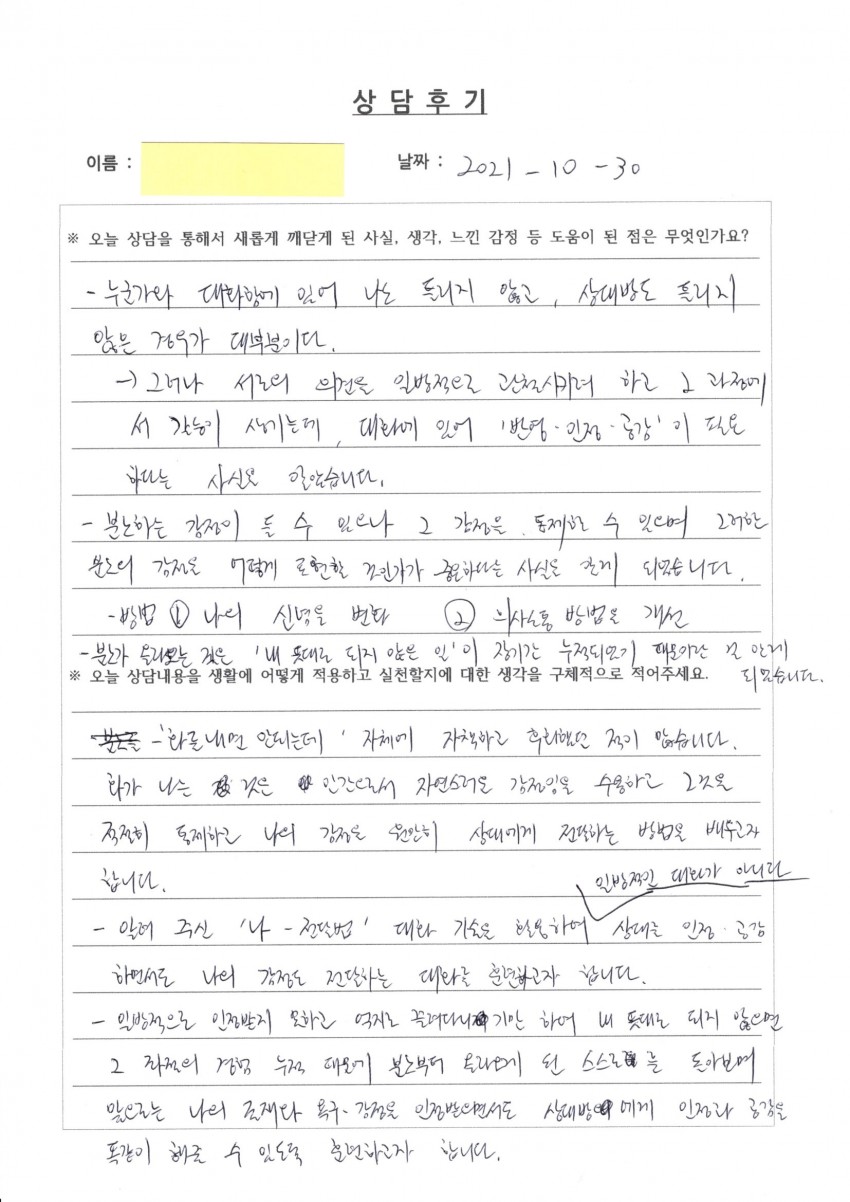 상 담 후 기
이름 :
날짜 : 2021 - 10 - 30
※ 오늘 상담을 통해서 새롭게 깨닫게 된 사실, 생각, 느낀 감정 등 도움이 된 점은 무엇인가요?
- 누군가와 대화함에 있어 나는 틀리지 않고, 상대방도 틀리지
않은 경우가 대부분이다.
→ 그러나 서로의 의견을 일방적으로 관철시키려 하고 그 과정에
서 갈등이 생기는데, 대화에 있어 '반영·인정·공감'이 필요
하다는 사실을 알았습니다.
- 분노하는 감정이 들 수 있으나 그 감정을 통제할 수 있으며 그러한
분노의 감정을 어떻게 표현할 것인가가 중요하다는 사실을 알게 되었습니다.
- 방법 ① 나의 신념을 변화 ② 의사소통 방법을 개선
- 분노가 올라오는 것은 '내 뜻대로 되지 않은 일'이 장기간 누적되었기 때문이란 걸 알게
되었습니다.
※ 오늘 상담내용을 생활에 어떻게 적용하고 실천할지에 대한 생각을 구체적으로 적어주세요.
- '화를 내면 안되는데' 자체에 자책하고 후회했던 적이 많습니다.
화가 나는 것은 인간으로서 자연스러운 감정임을 수용하고 그것을
적절히 통제하고 나의 감정을 원안히 상대에게 전달하는 방법을 배우고자
합니다.
일방적인 대화가 아니라
- 알려 주신 '나 - 전달법' 대화 기술을 활용하여 상대를 인정·공감
하면서도 나의 감정도 전달하는 대화를 훈련하고자 합니다.
- 일방적으로 인정받지 못하고 억지로 끌려다니기만 하여 내 뜻대로 되지 않으면
그 좌절의 경험 누적 때문에 분노부터 올라오게 된 스스로를 돌아보며
앞으로는 나의 존재와 욕구·감정을 인정받으면서도 상대방에게 인정과 공감을
똑같이 해줄 수 있도록 훈련하고자 합니다.